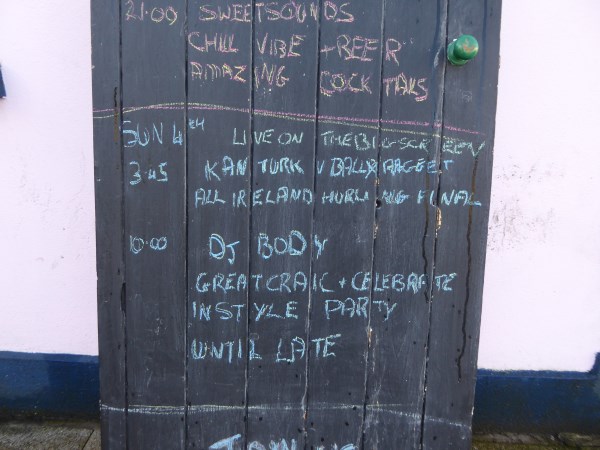 21:00 SWEETSOUNDS
CHILL VIBE + BEER
AMAZING COCKTAILS
SUN 4th LIVE ON THE BIG SCREEN
3.45 KANTURK V BALLYRAGGET
ALL IRELAND HURLING FINAL
10:00 DJ BODY
GREAT CRAIC + CELEBRATE
IN STYLE PARTY
UNTIL LATE
JOIN US